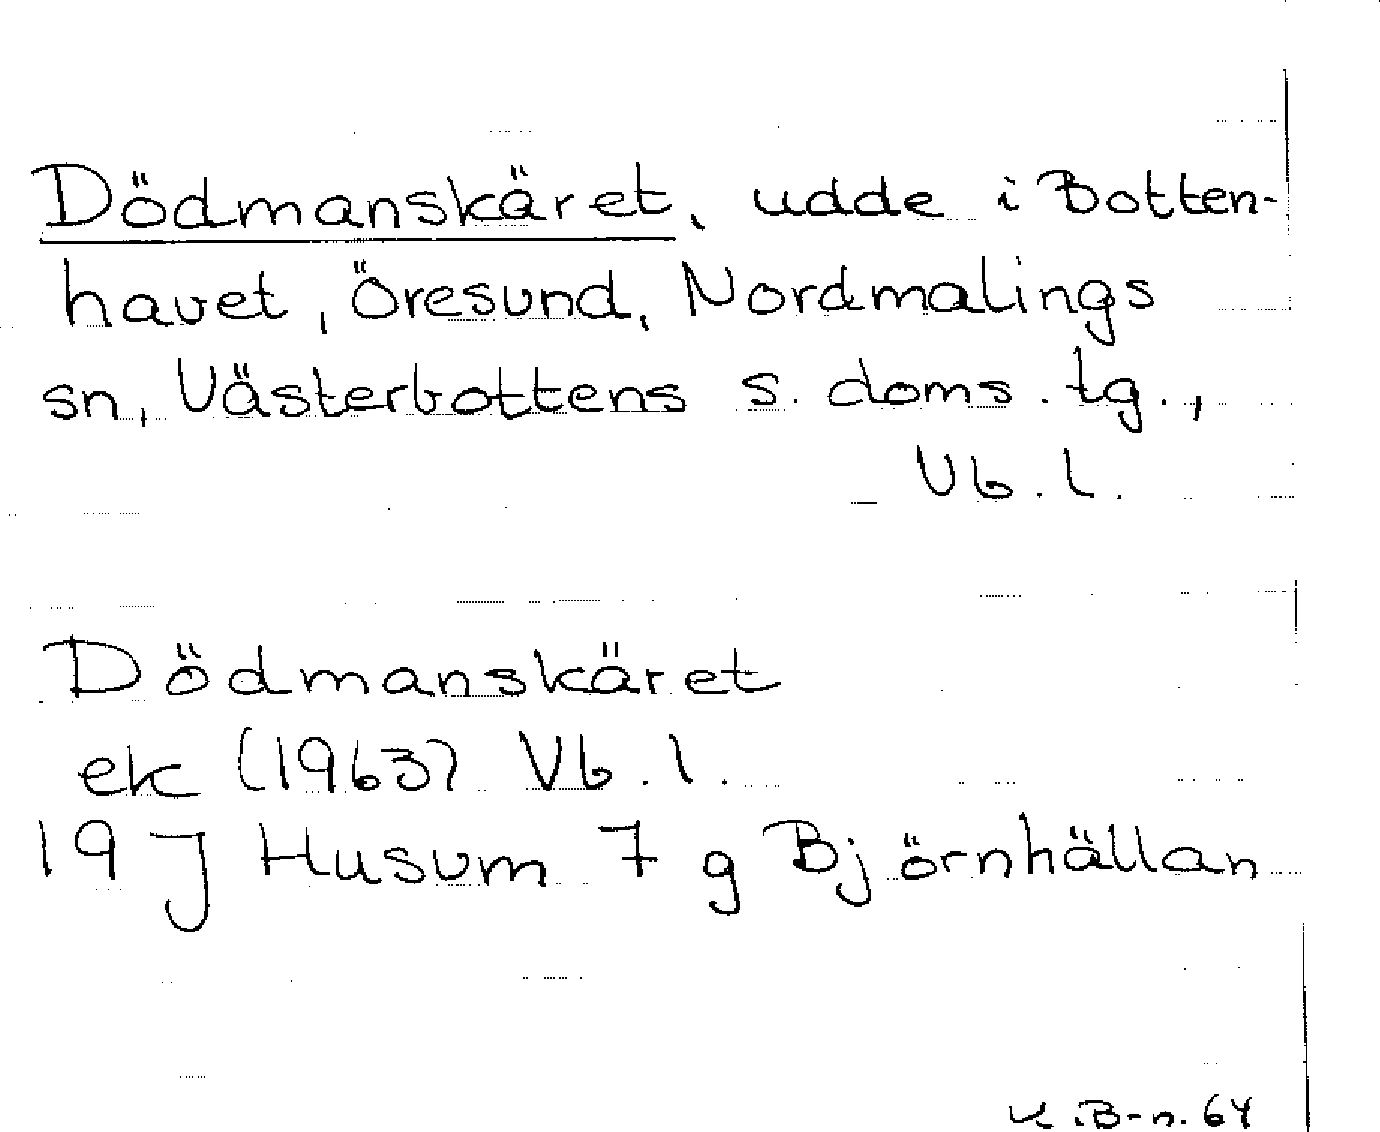 Dödmanskäret, udde i Botten-
havet, Öresund, Nordmalings
sn, Västerbottens s. doms. tg.,
Vb. l.
Dödmanskäret
ek (1963) Vb. l.
19 J Husum 7 g Björnhällan
K.B-n. 64